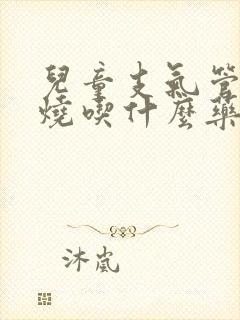 兒童支氣管
燒喫什麼藥
沐嵐